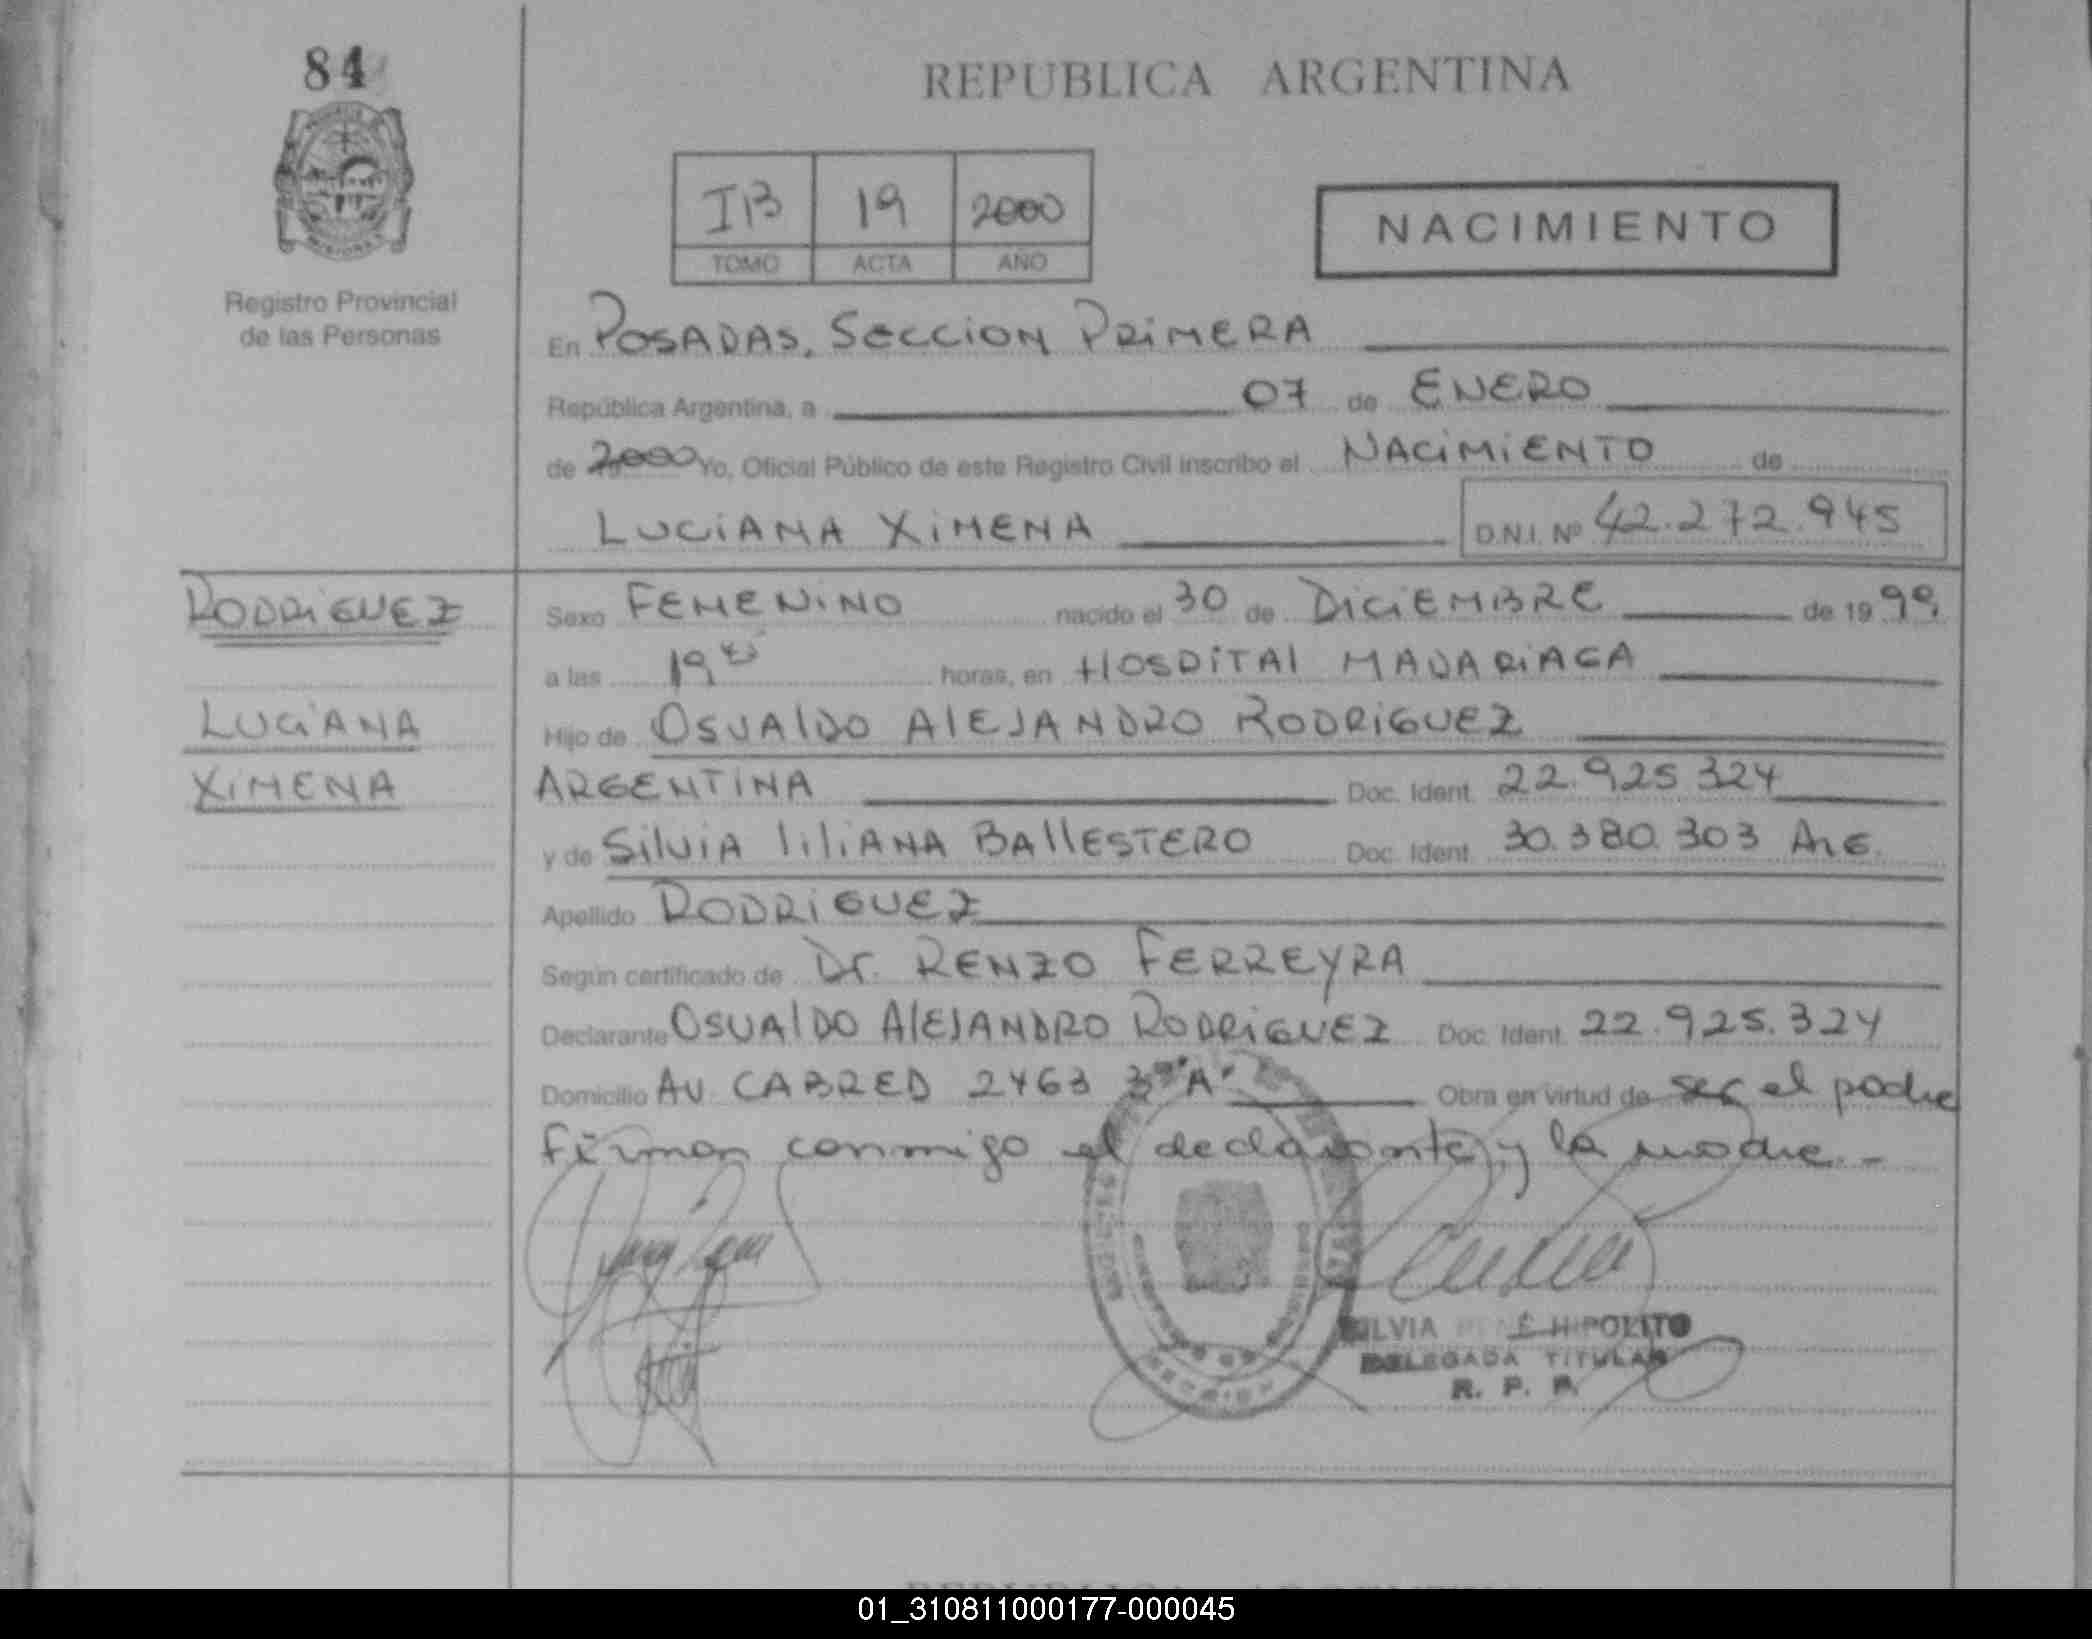 84
REPUBLICA ARGENTINA
IB 19 2000
TOMO ACTA AÑO
NACIMIENTO
MISIONES
Registro Provincial
de las Personas
En POSADAS, SECCION PRIMERA
República Argentina, a 07 de ENERO
de 2000 Yo, Oficial Público de este Registro Civil inscribo el NACIMIENTO de
LUCIANA XIMENA D.N.I. Nº 42.272.945
RODRIGUEZ
LUCIANA
XIMENA
Sexo FEMENINO nacido el 30 de DICIEMBRE de 1999
a las 19 horas, en HOSPITAL MADARIAGA
Hijo de OSVALDO ALEJANDRO RODRIGUEZ
ARGENTINA Doc. Ident. 22.925.324
y de SILVIA LILIANA BALLESTERO Doc. Ident. 30.380.303 ARG.
Apellido RODRIGUEZ
Según certificado de Dr. RENZO FERREYRA
Declarante OSVALDO ALEJANDRO RODRIGUEZ Doc. Ident. 22.925.324
Domicilio AV. CABRED 2463 3º "A" Obra en virtud de ser el padre
firman conmigo el declarante y la madre.-
SILVIA RENÉ HIPOLITO
DELEGADA TITULAR
R. P. P.
01_310811000177-000045